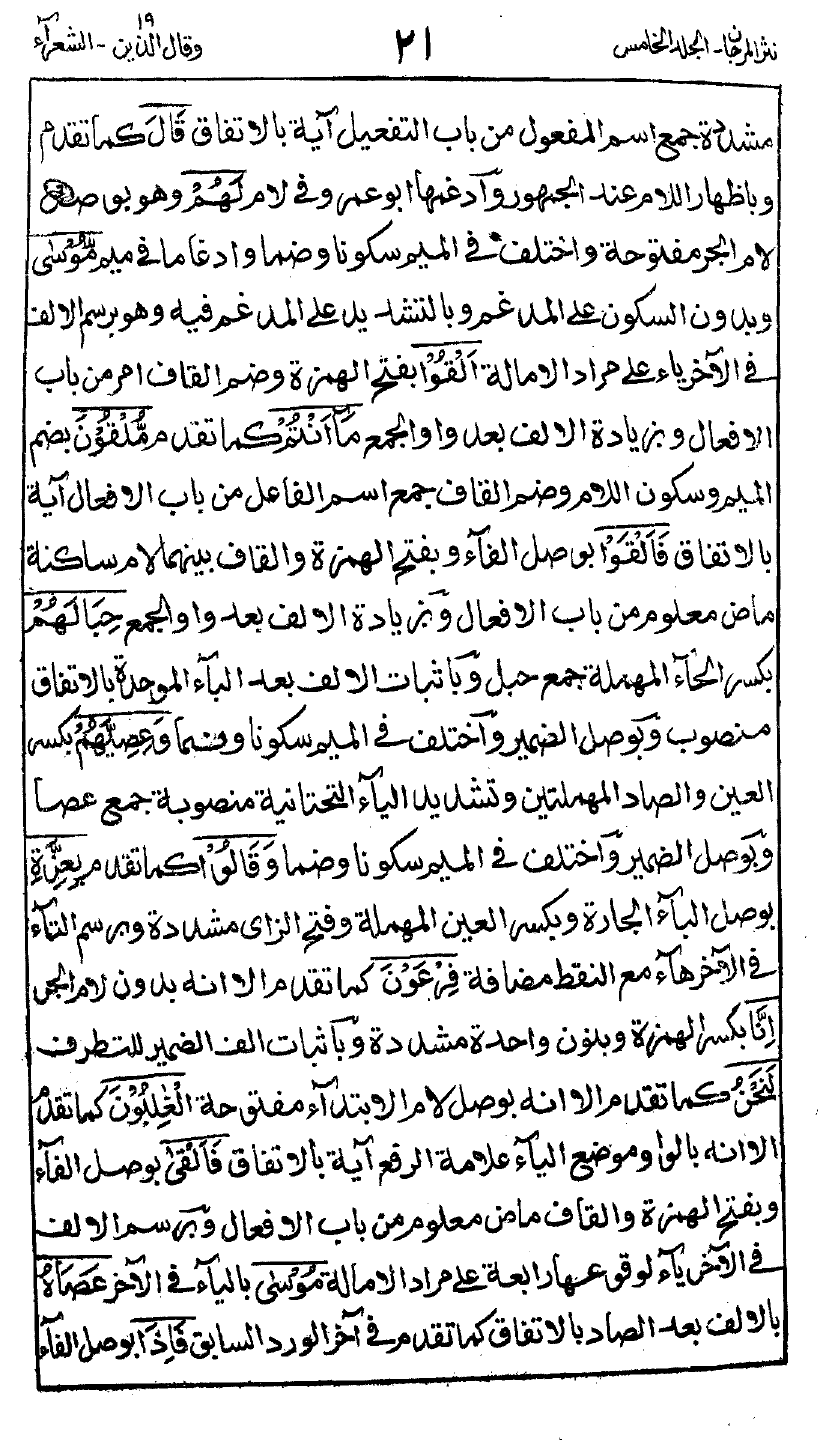 نثر المرجان - الجلد الخامس ٢١ وقال الذين ١٩ - الشعرآء
مشددة جمع اسم المفعول من باب التفعيل آية بالاتفاق قَالَ كما تقدم
وباظهار اللام عند الجمهور وآدغمها ابو عمرو في لام لَهُمْ وهو بوصل
لام الجر مفتوحة واختلف في الميم سكونا وضما وادغاما في ميم مُّوْسٰى
وبدون السكون على المدغم وبالتشديد على المدغم فيه وهو برسم الالف
في الآخر ياء على مراد الامالة اَلْقُوْا بفتح الهمزة وضم القاف امر من باب
الافعال وبزيادة الالف بعد واو الجمع مَآ اَنْتُمْ كما تقدم مُّلْقُوْنَ بضم
الميم وسكون اللام وضم القاف جمع اسم الفاعل من باب الافعال آية
بالاتفاق فَاَلْقَوْا بوصل الفآء وبفتح الهمزة والقاف بينهما لام ساكنة
ماض معلوم من باب الافعال وبزيادة الالف بعد واو الجمع حِبَالَهُمْ
بكسر الحآء المهملة جمع حبل وباثبات الالف بعد البآء الموحدة بالاتفاق
منصوب وبوصل الضمير وآختلف في الميم سكونا وضما وَعِصِيَّهُمْ بكسر
العين والصاد المهملتين وتشديد اليآء التحتانية منصوبة جمع عصا
وبوصل الضمير وآختلف في الميم سكونا وضما وَقَالُوْا كما تقدم بِعِزَّةِ
بوصل البآء الجارة وبكسر العين المهملة وفتح الزاى مشددة وبرسم التآء
في الآخر هآء مع النقط مضافة فِرْعَوْنَ كما تقدم الا انه بدون لام الجر
اِنَّا بكسر الهمزة وبنون واحدة مشددة وباثبات الف الضمير للتطرف
لَنَحْنُ كما تقدم الا انه بوصل لام الابتدآء مفتوحة الْغٰلِبُوْنَ كما تقدم
الا انه بالواو موضع اليآء علامة الرفع آية بالاتفاق فَاَلْقٰى بوصل الفآء
وبفتح الهمزة والقاف ماض معلوم من باب الافعال وبرسم الالف
في الآخر يآء لوقوعها رابعة على مراد الامالة مُوْسٰى باليآء في الآخر عَصَاهُ
بالالف بعد الصاد بالاتفاق كما تقدم في آخر الورد السابق فَاِذَا بوصل الفآء